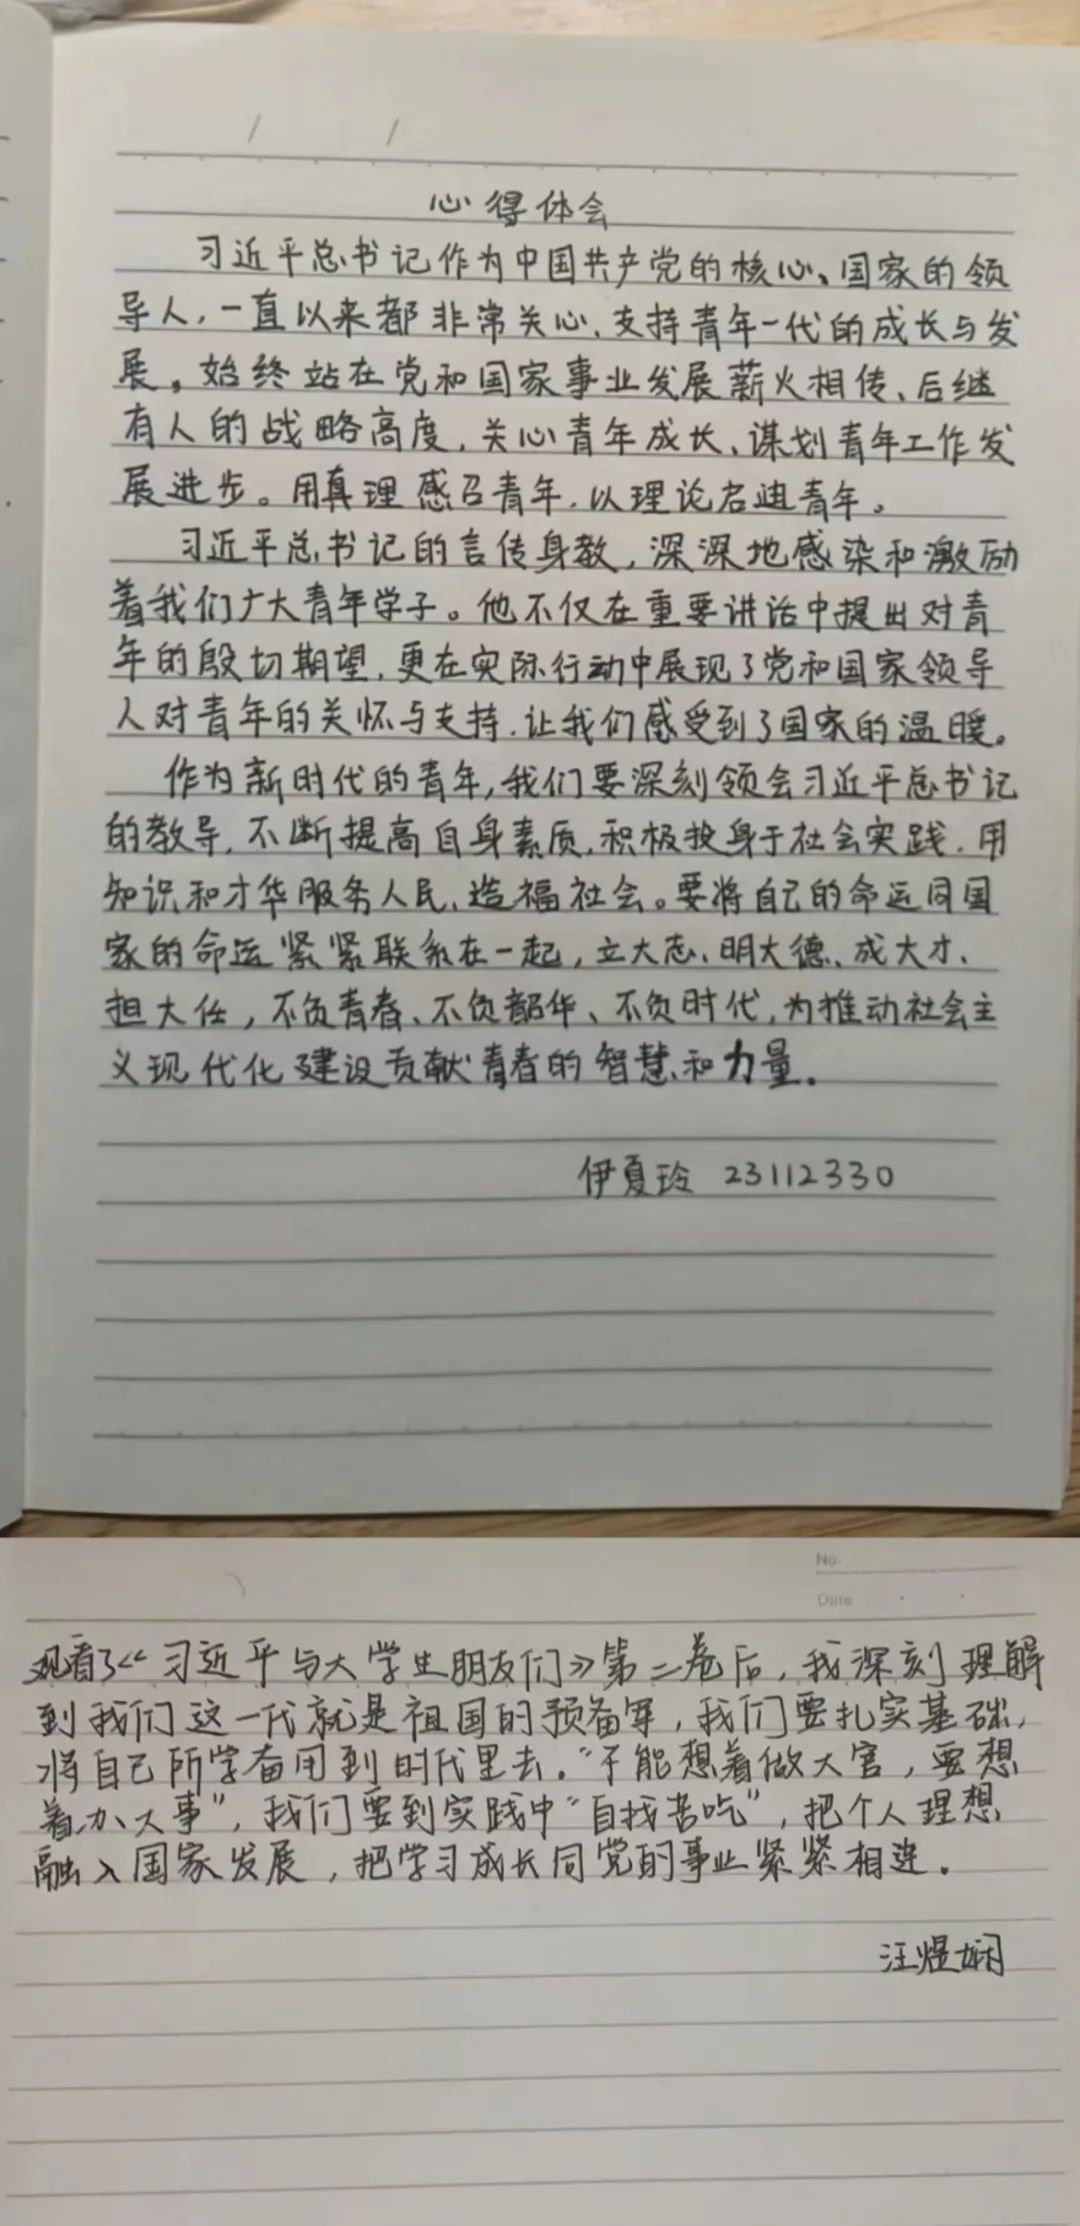 心得体会
习近平总书记作为中国共产党的核心、国家的领
导人，一直以来都非常关心、支持青年一代的成长与发
展。始终站在党和国家事业发展薪火相传、后继
有人的战略高度，关心青年成长、谋划青年工作发
展进步。用真理感召青年，以理论启迪青年。
习近平总书记的言传身教，深深地感染和激励
着我们广大青年学子。他不仅在重要讲话中提出对青
年的殷切期望，更在实际行动中展现了党和国家领导
人对青年的关怀与支持，让我们感受到了国家的温暖。
作为新时代的青年，我们要深刻领会习近平总书记
的教导，不断提高自身素质，积极投身于社会实践，用
知识和才华服务人民、造福社会。要将自己的命运同国
家的命运紧紧联系在一起，立大志、明大德、成大才、
担大任，不负青春、不负韶华、不负时代，为推动社会主
义现代化建设贡献青春的智慧和力量。
伊夏玲 23112330
No.
Date
观看了《习近平与大学生朋友们》第二卷后，我深刻理解
到我们这一代就是祖国的预备军，我们要扎实基础，
将自己所学奋用到时代里去。“不能想着做大官，要想
着办大事”，我们要到实践中“自找苦吃”，把个人理想
融入国家发展，把学习成长同党的事业紧紧相连。
汪煜娴